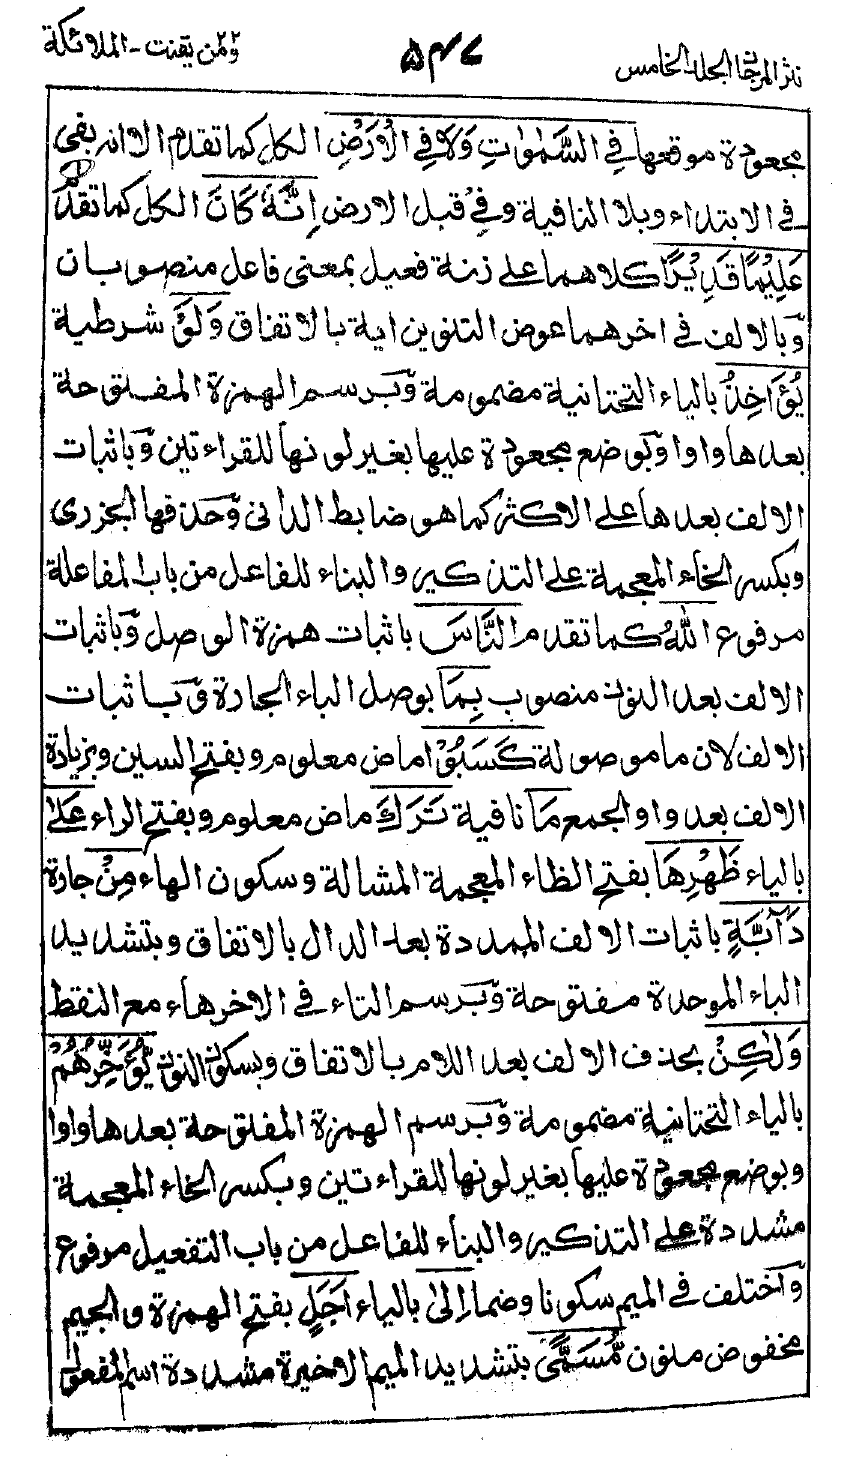 نثر المرجان الجلد الخامس
٥٤٧
ومن يقنت ٢٢ - الملائكة
مجعودة موقعها فِي السَّمٰوٰتِ وَلَا فِي الْاَرْضِ الكل كما تقدم الا انه بفى
فى الابتداء وبلا النافية وفى قبل الارض اِنَّهٗ كَانَ الكل كما تقدم
عَلِيْمًا قَدِيْرًا كلاهما على زنة فعيل بمعنى فاعل منصوبان
وبالالف فى اخرهما عوض التنوين اية بالاتفاق وَلَوْ شرطية
يُؤَاخِذُ بالياء التحتانية مضمومة وبرسم الهمزة المفتوحة
بعدها واوا وبوضع مجعودة عليها بغير لونها للقراءتين وباثبات
الالف بعدها على الاكثر كما هو ضابط الدانى وحذفها الجزرى
وبكسر الخاء المعجمة على التذكير والبناء للفاعل من باب المفاعلة
مرفوع اللّٰهُ كما تقدم النَّاسَ باثبات همزة الوصل وباثبات
الالف بعد النون منصوب بِمَا بوصل الباء الجارة وباثبات
الالف لان ما موصولة كَسَبُوْا ماض معلوم وبفتح السين وبزيادة
الالف بعد واو الجمع مَا نافية تَرَكَ ماض معلوم وبفتح الراء عَلٰى
بالياء ظَهْرِهَا بفتح الظاء المعجمة المشالة وسكون الهاء مِنْ جارة
دَآبَّةٍ باثبات الالف الممددة بعد الدال بالاتفاق وبتشديد
الباء الموحدة مفتوحة وبرسم التاء فى الاخر هاء مع النقط
وَلٰكِنْ بحذف الالف بعد اللام بالاتفاق وبسكون النون يُّؤَخِّرُهُمْ
بالياء التحتانية مضمومة وبرسم الهمزة المفتوحة بعدها واوا
وبوضع مجعودة عليها بغير لونها للقراءتين وبكسر الخاء المعجمة
مشددة على التذكير والبناء للفاعل من باب التفعيل مرفوع
واختلف فى الميم سكونا وضما اِلٰى بالياء اَجَلٍ بفتح الهمزة والجيم
مخفوض منون مُّسَمًّى بتشديد الميم الاخيرة مشددة اسم المفعول